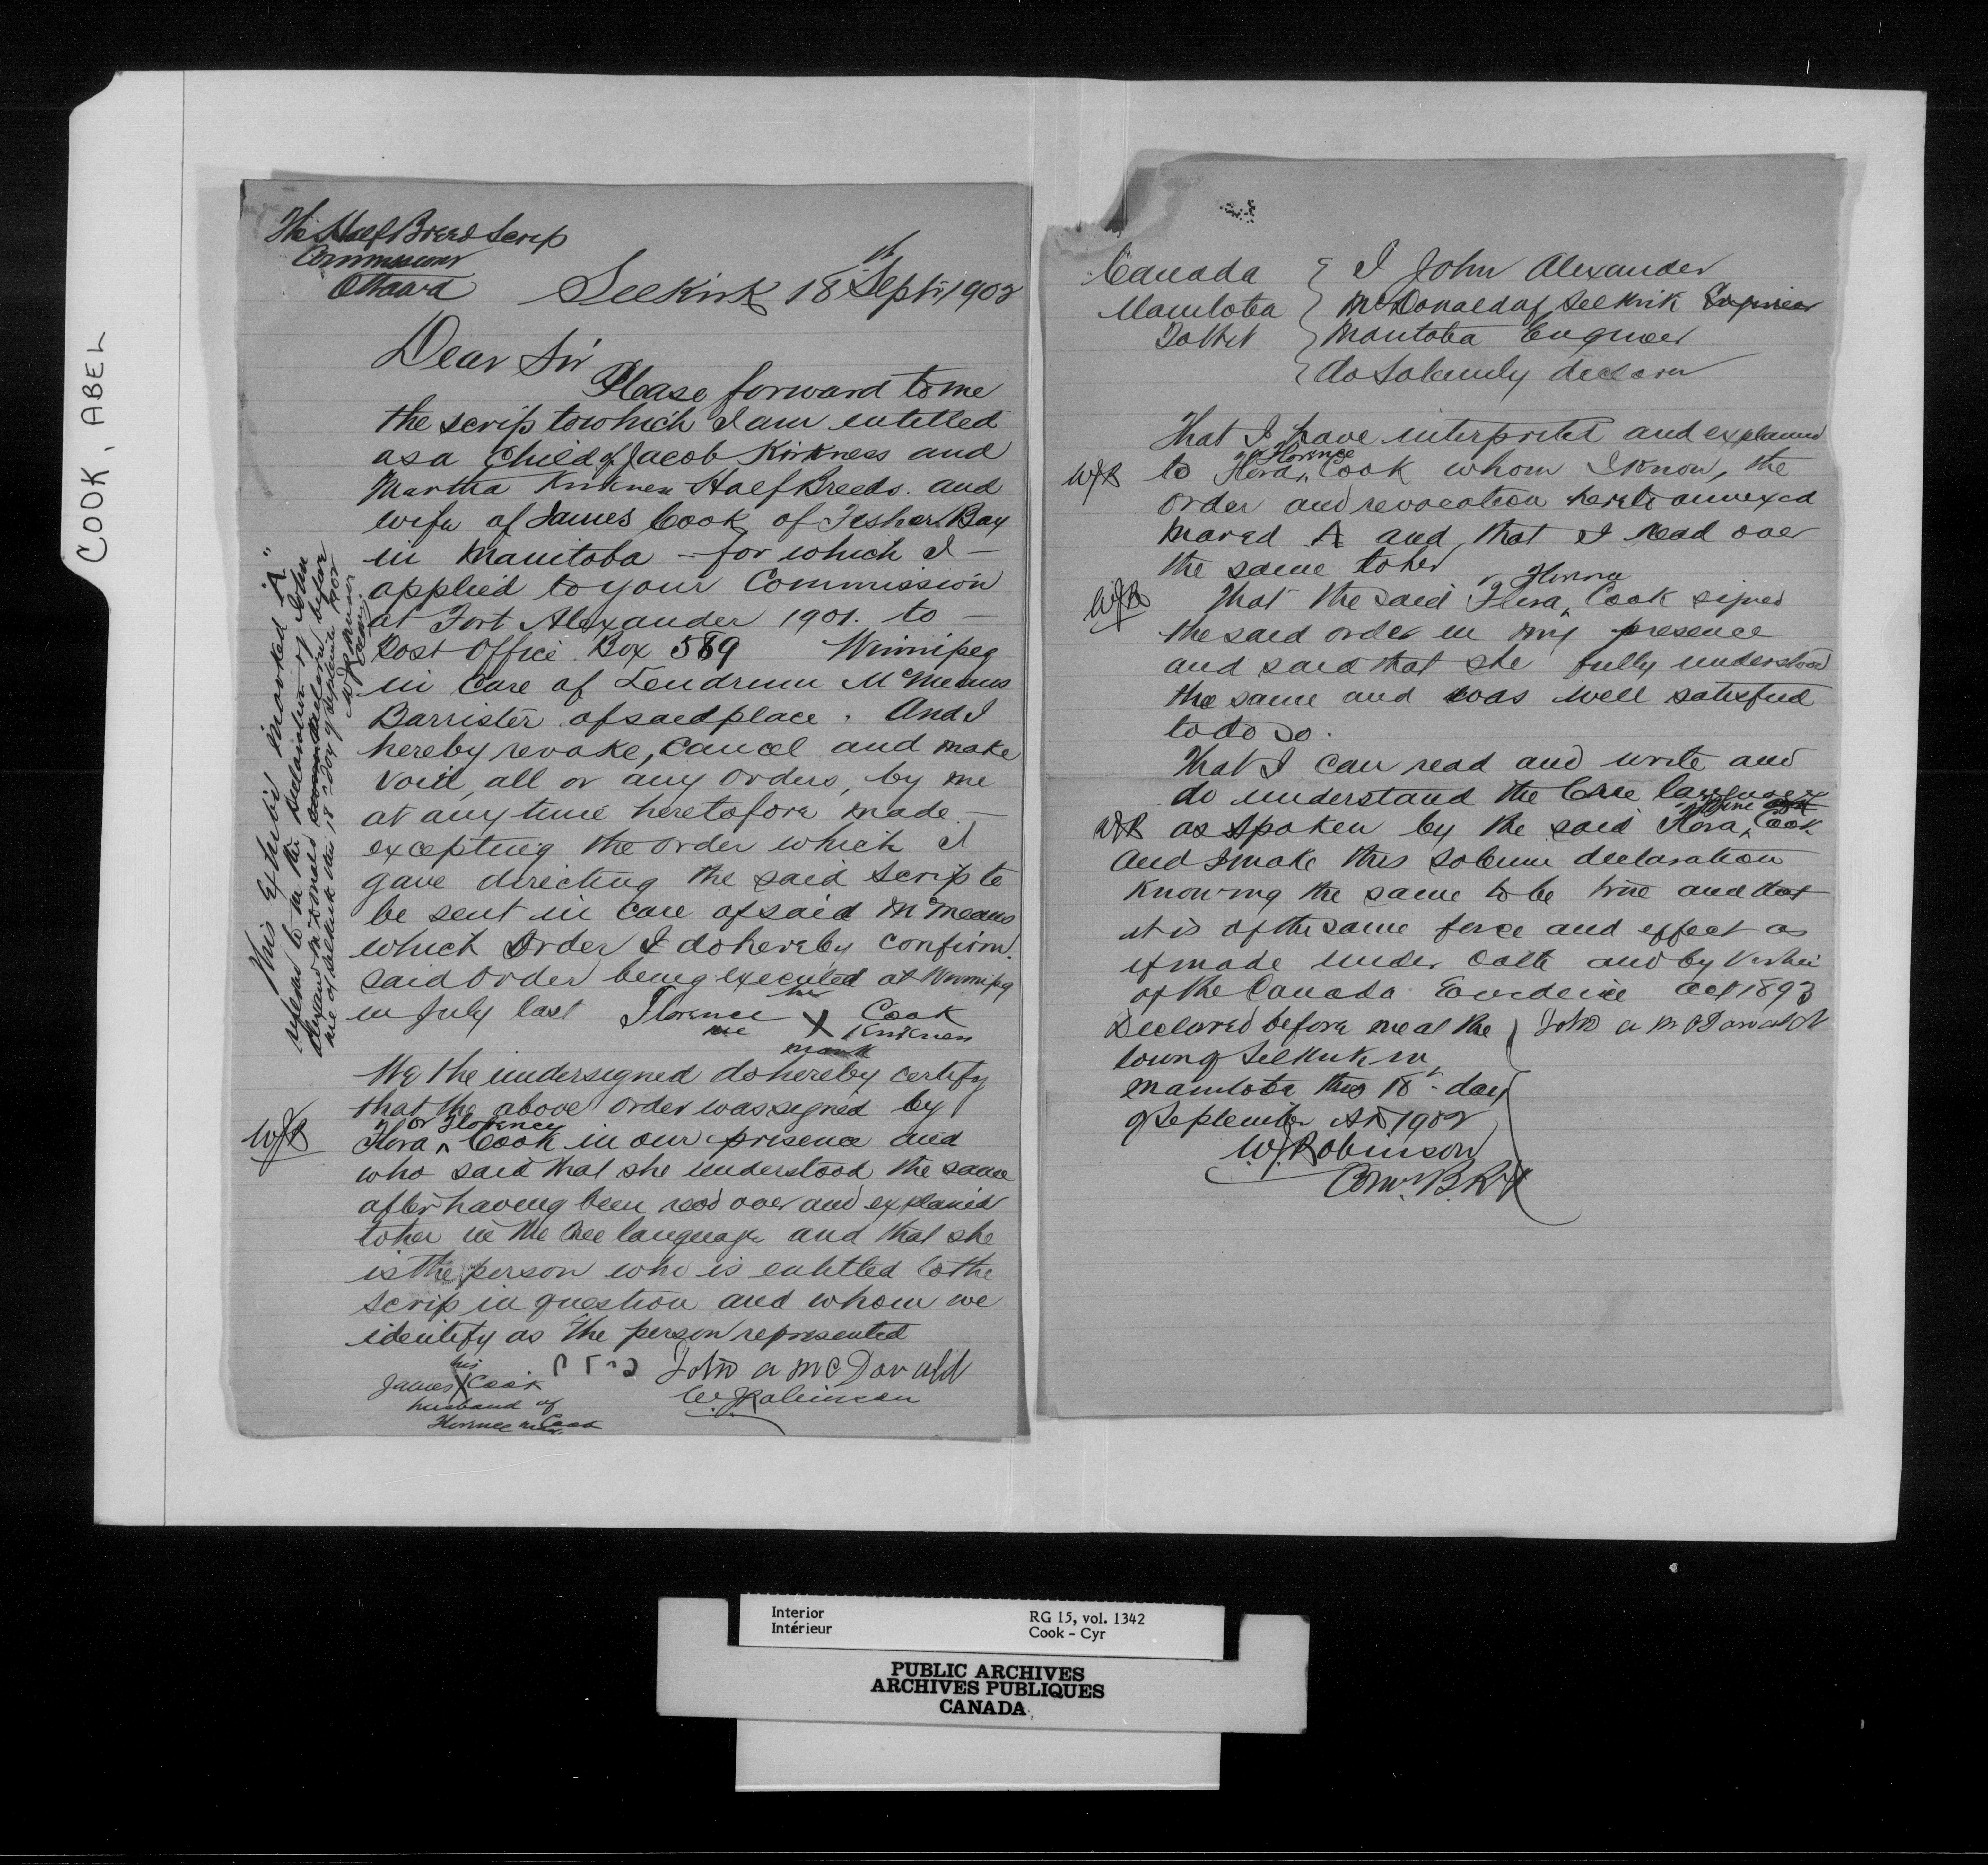 COOK, ABEL
The Half Breed Scrip
Commissioner
Ottawa
Selkirk 18th Sept 1902
Dear Sir
Please forward to me
the scrip to which I am entitled
as a Child of Jacob Kirkness and
Martha Kirkness Half Breeds. and
wife of James Cook of Fisher Bay
in Manitoba - for which I -
applied to your Commission
at Fort Alexander 1901. to -
Post Office Box 589 Winnipeg
in Care of Lendrum McMeans
Barrister of said place. And I
hereby revoke, Cancel and make
Void, all or any orders, by me
at any time heretofore made -
excepting the order which I
gave directing the said Scrip to
be sent in Care of said McMeans
which Order I do hereby Confirm.
said order being executed at Winnipeg
in July last Florence her X mark Cook
nee Kirkness
We the undersigned do hereby certify
that the above order was signed by
WJR Flora ^ or Florence Cook in our presence and
who said that she understood the same
after having been read over and explained
to her in the Cree language and that she
is the person who is entitled to the
scrip in question and whom we
identify as the person represented
James his X Cook
husband of
Florence Cook
John a McDonald
W. J. Robinson
This Exhibit marked "A"
referred to in the declaration of John
Alexander McDonald declared before
me at Selkirk this 18th day of September 1902
WJ Robinson
Com.
Canada
Manitoba
To Wit
I John Alexander
McDonald of Selkirk Engineer
Manitoba Engineer
do Solemnly declare
That I have interpreted and explained
WJR to Flora ^ or Florence Cook whom I know, the
order and revocation hereto annexed
marked A and that I read over
the same to her
WJR That the said Flora ^ Florence Cook signed
the said order in my presence
and said that she fully understood
the same and was well satisfied
to do so.
That I can read and write and
do understand the Cree language
WJR as spoken by the said Flora ^ Cook
And I make this solemn declaration
Knowing the same to be true and that
it is of the same force and effect as
if made under Oath and by Virtue
of the Canada Evidence Act 1893
Declared before me at the
town of Selkirk in
Manitoba this 18th day
of September AD 1902
John a McDonald
W. J. Robinson
Com. B.R.
Interior
Intérieur
RG 15, vol. 1342
Cook - Cyr
PUBLIC ARCHIVES
ARCHIVES PUBLIQUES
CANADA